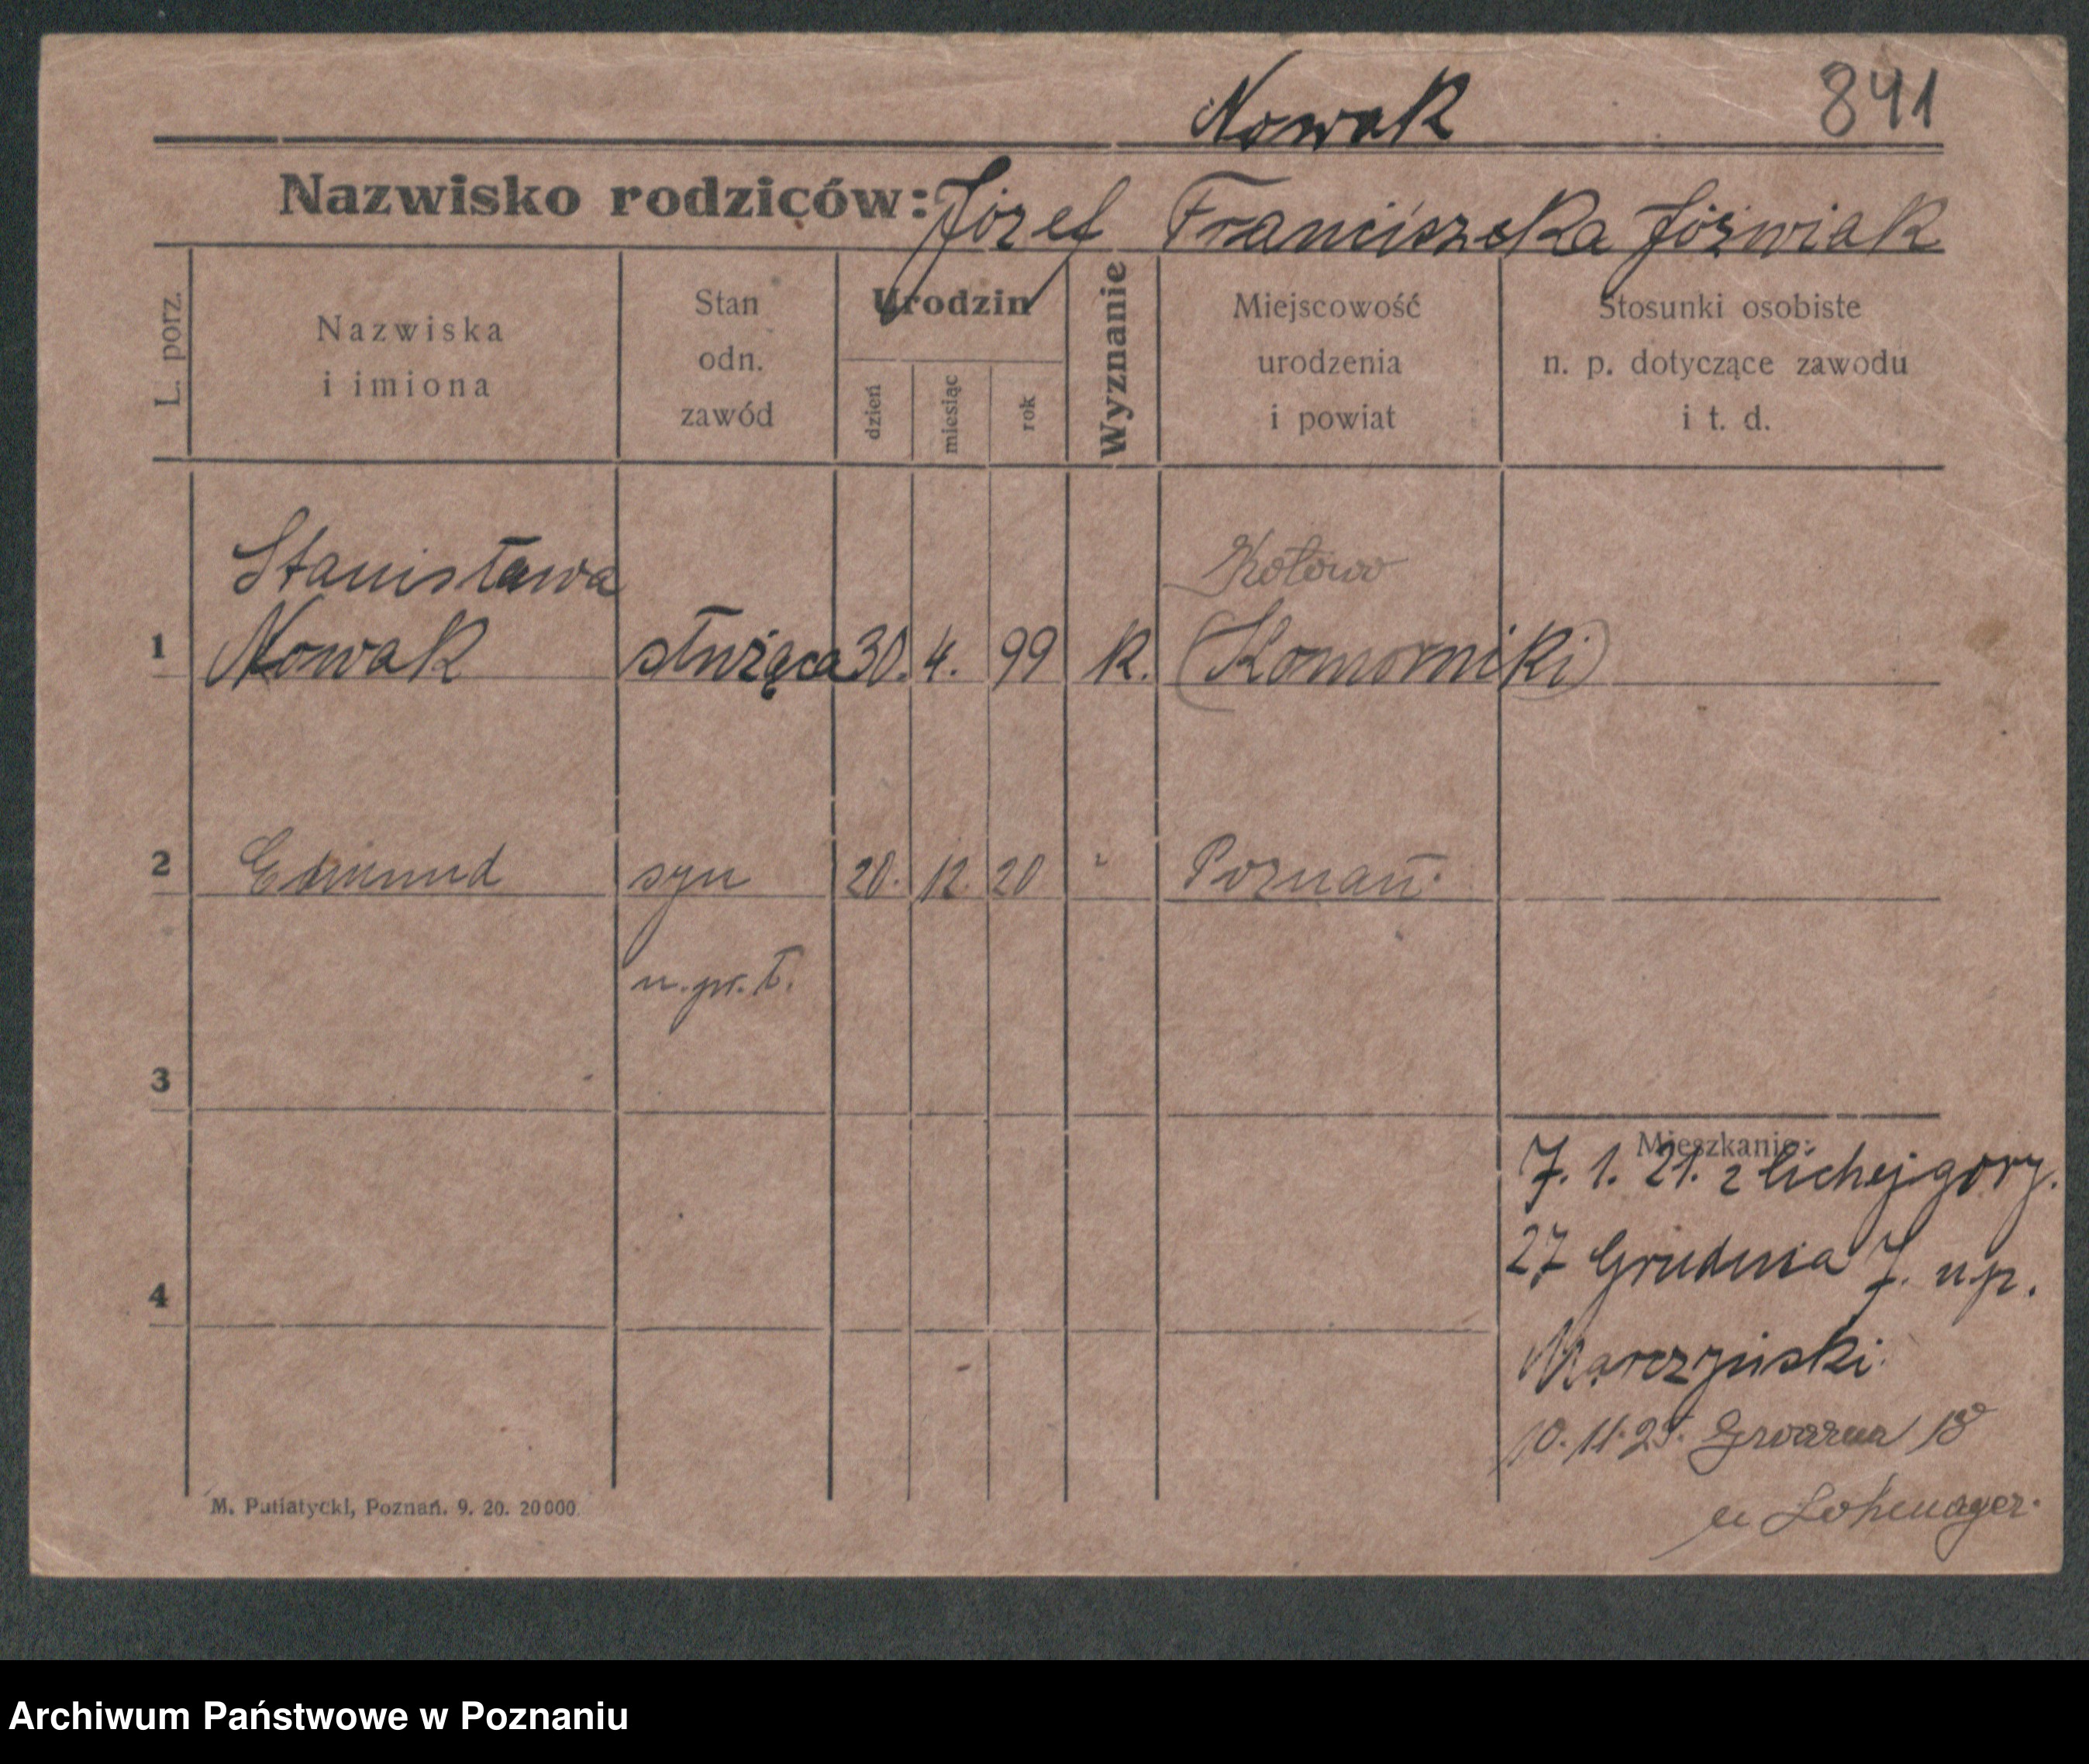 Nowak 841
Nazwisko rodziców: Józef Franciszka Jóźwiak
L. porz.
Nazwiska
i imiona
Stan
odn.
zawód
Urodzin
dzień
miesiąc
rok
Wyznanie
Miejscowość
urodzenia
i powiat
Stosunki osobiste
n. p. dotyczące zawodu
i t. d.
Stanisława Kotowo
1 Nowak służąca 30. 4. 99 k. (Komorniki)
2 Edmund syn 20. 12 20 " Poznań
n. pr. ł.
3
Mieszkanie:
7. 1. 21. z Cichej gory.
27 Grudnia 7. u p.
4
Marczyński.
10. 11. 25. Gwarna 18
u
M. Putiatycki, Poznań. 9. 20. 20000.
Archiwum Państwowe w Poznaniu